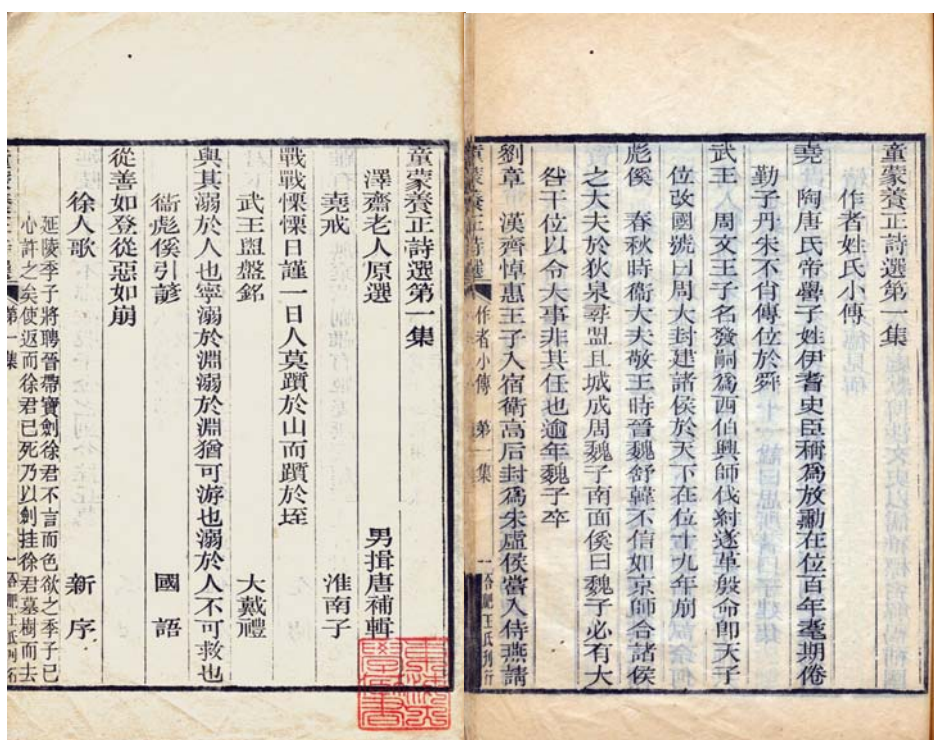 童蒙養正詩選第一集
作者姓氏小傳
堯　陶唐氏帝嚳子姓伊耆史臣稱爲放勳在位百年耄期倦
勤子丹朱不肖傳位於舜
武王　周文王子名發嗣爲西伯興師伐紂遂革殷命卽天子
位改國號曰周大封建諸侯於天下在位十九年崩
彪傒　春秋時衞大夫敬王時晉魏舒韓不信如京師合諸侯
之大夫於狄泉尋盟且城成周魏子南面傒曰魏子必有大
咎干位以令大事非其任也逾年魏子卒
劉章　漢齊悼惠王子入宿衞高后封爲朱虛侯嘗入侍燕請
童蒙養正詩選　作者小傳　第一集　一
童蒙養正詩選第一集
澤齋老人原選　男揖唐補輯
堯戒　淮南子
戰戰慄慄日謹一日人莫躓於山而躓於垤
武王盥盤銘　大戴禮
與其溺於人也寧溺於淵溺於淵猶可游也溺於人不可救也
衞彪傒引諺　國語
從善如登從惡如崩
徐人歌　新序
延陵季子將聘晉帶寶劍徐君不言而色欲之季子已
心許之矣使返而徐君已死乃以劍挂徐君墓樹而去
第一集　一